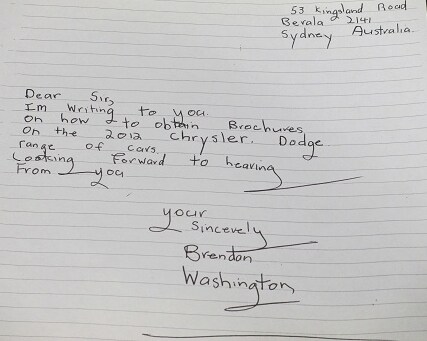 53 Kingsland Road
Berala 2141
Sydney Australia
Dear Sir,
Im Writing to you.
On how to obtain Brochures
On the 2012 Chrysler. Dodge
range of cars
Looking Forward to hearing
From you
your
Sincerely
Brendan
Washington